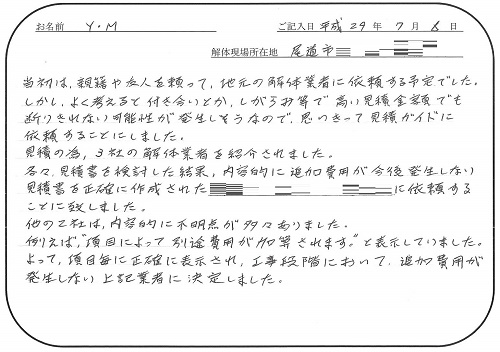 お名前 Y・M ご記入日 平成 29 年 7 月 6 日
解体現場所在地 尾道市
当初は、親籍や友人を頼って、地元の解体業者に依頼する予定でした。
しかし、よく考えると付き合いとか、しがらみ等で高い見積金額でも
断りきれない可能性が発生しそうなので、思いきって見積ガイドに
依頼することにしました。
見積の為、3社の解体業者を紹介されました。
各々、見積書を検討した結果、内容的に追加費用が今後発生しない
見積書を正確に作成された に依頼する
ことに致しました。
他の2社は、内容的に不明点が多々ありました。
例えば、"項目によって別途費用が加算されます。"と表示していました。
よって、項目毎に正確に表示され、工事段階において、追加費用が
発生しない上記業者に決定しました。